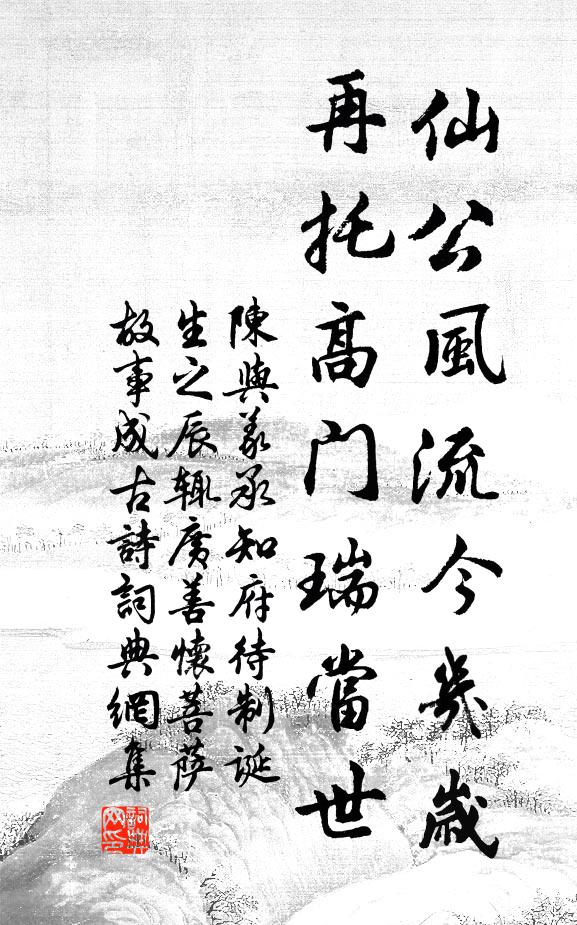 仙公風流今幾歲
再托高門瑞當世
陳與義承知府待制誕
生之辰輒廣善懷菩薩
故事成古詩詞典網集